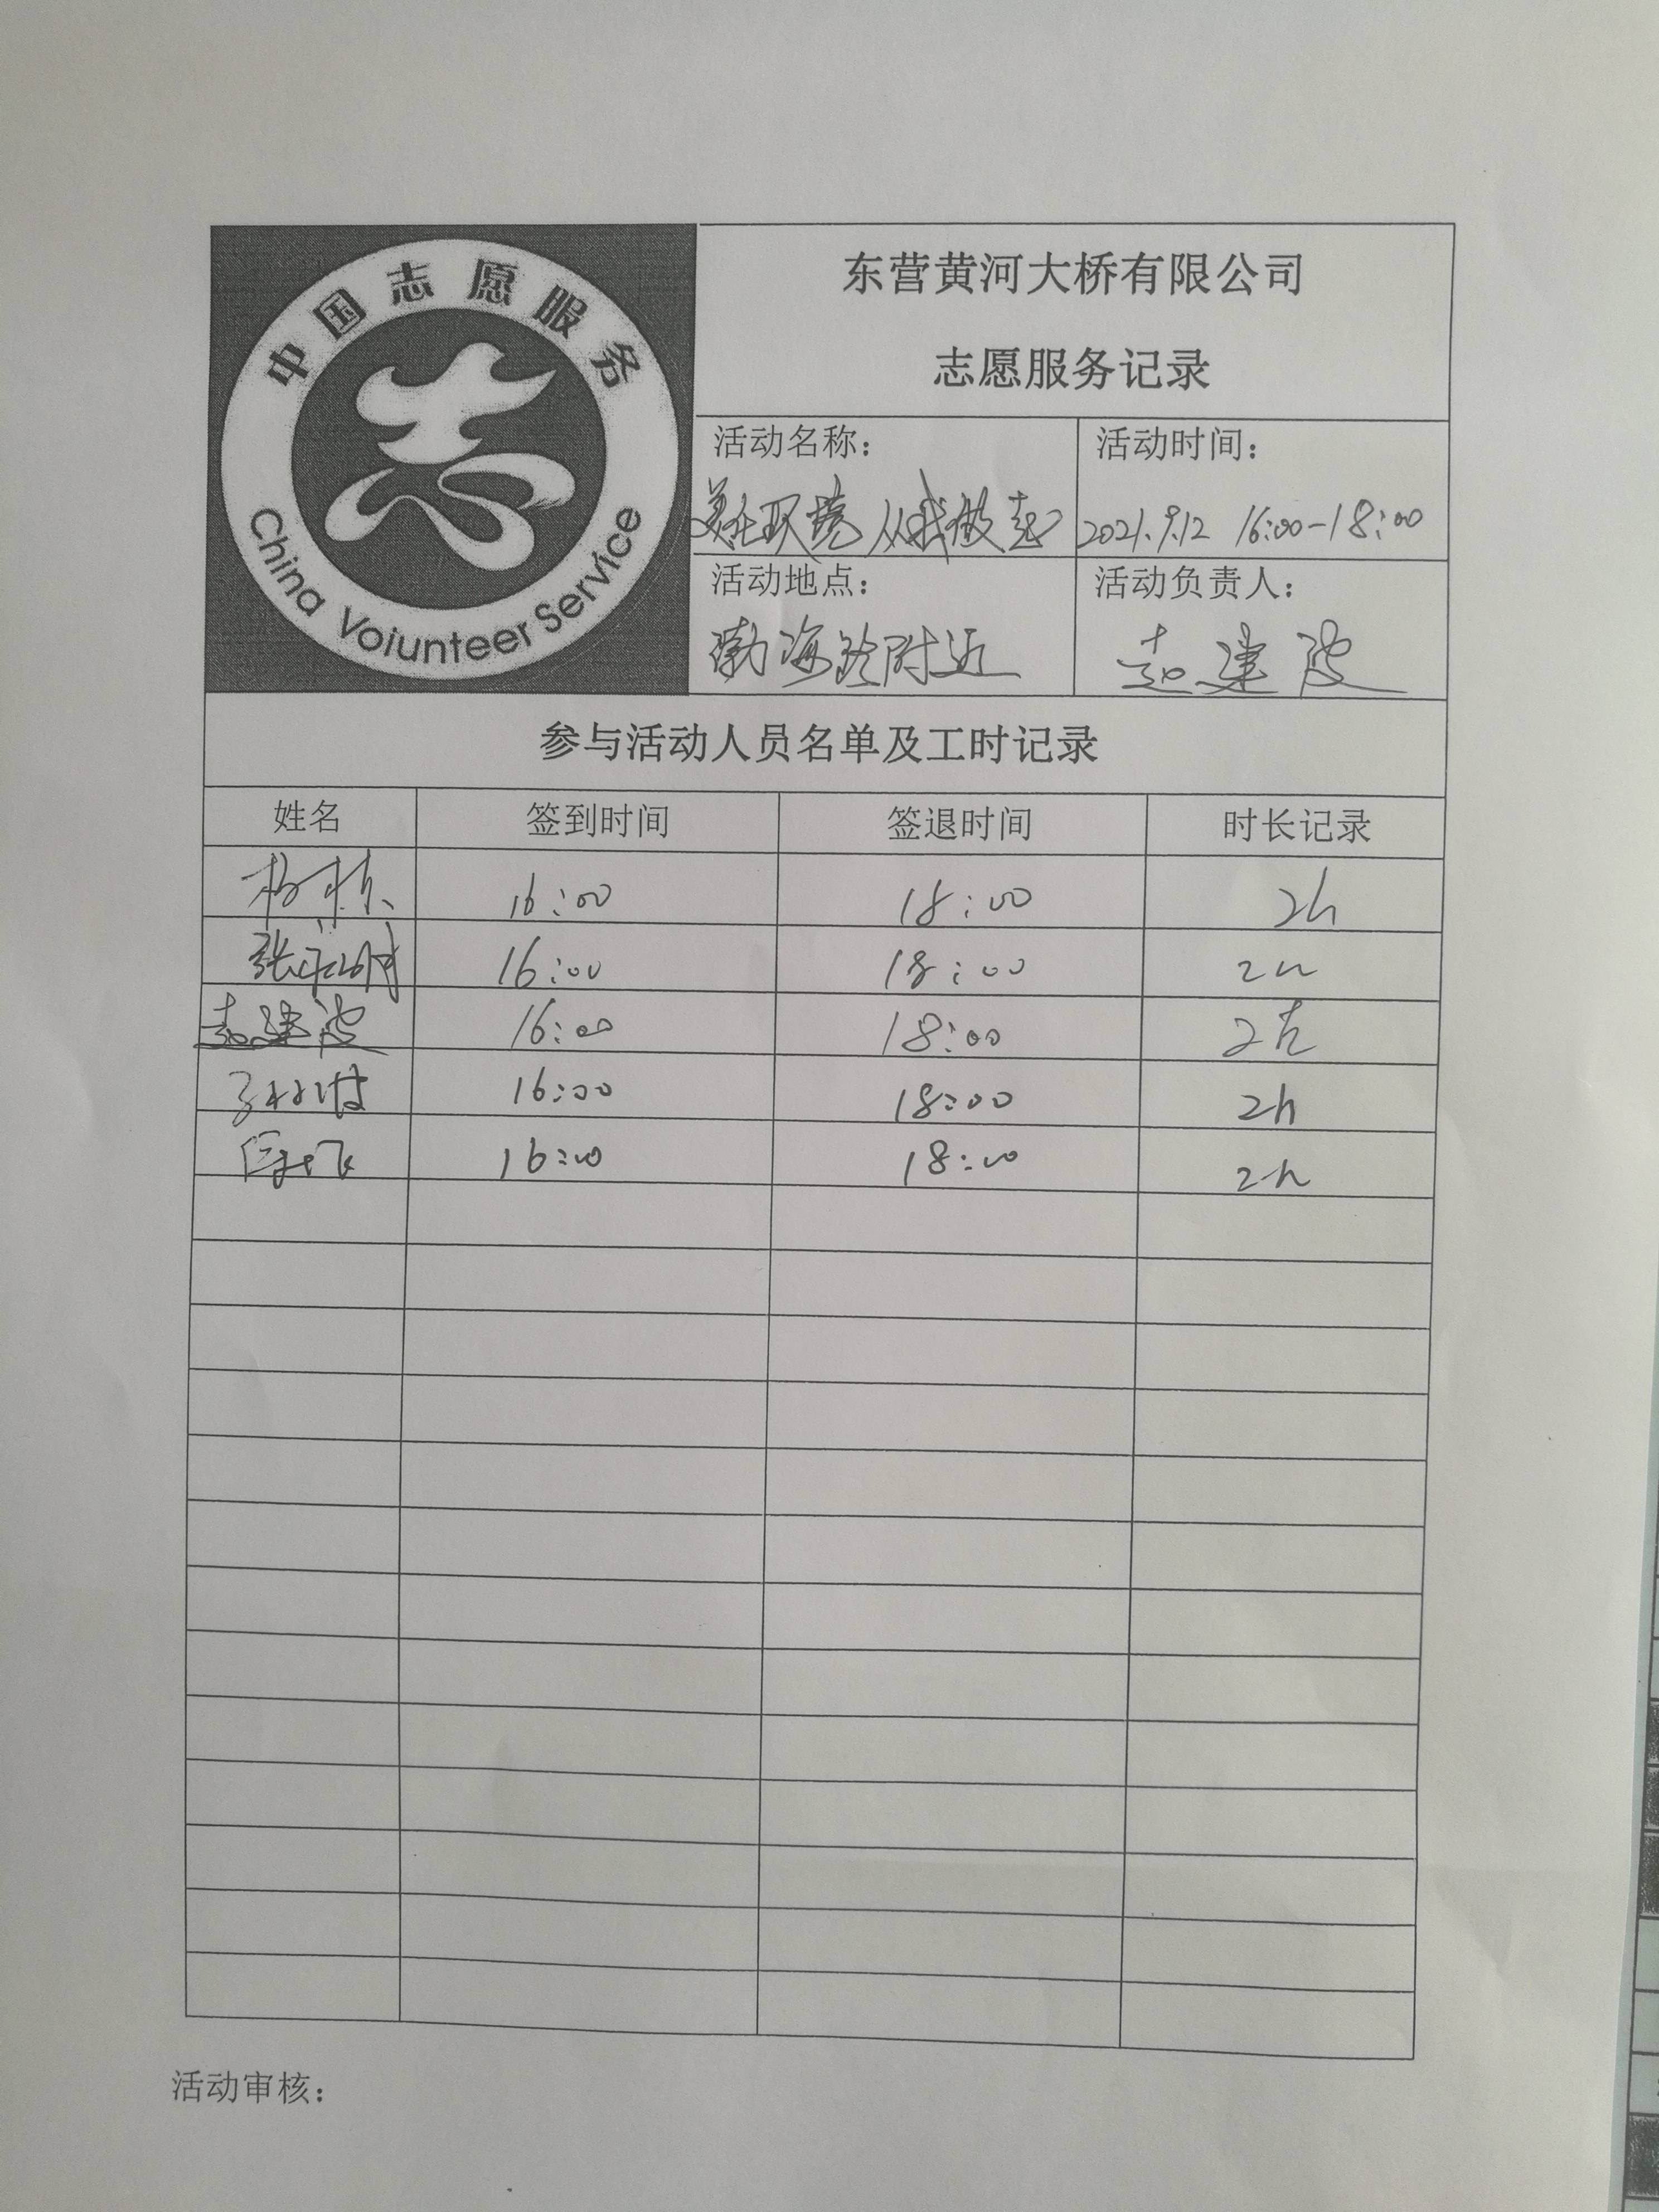 中国志愿服务
China Voiunteer Service
东营黄河大桥有限公司
志愿服务记录
活动名称：
美在环境 从我做起
活动时间：
2021.9.12 16:00-18:00
活动地点：
渤海路附近
活动负责人：
赵建波
参与活动人员名单及工时记录
姓名 签到时间 签退时间 时长记录
16:00 18:00 2h
16:00 18:00 2h
赵建波 16:00 18:00 2h
16:00 18:00 2h
16:00 18:00 2h
活动审核：